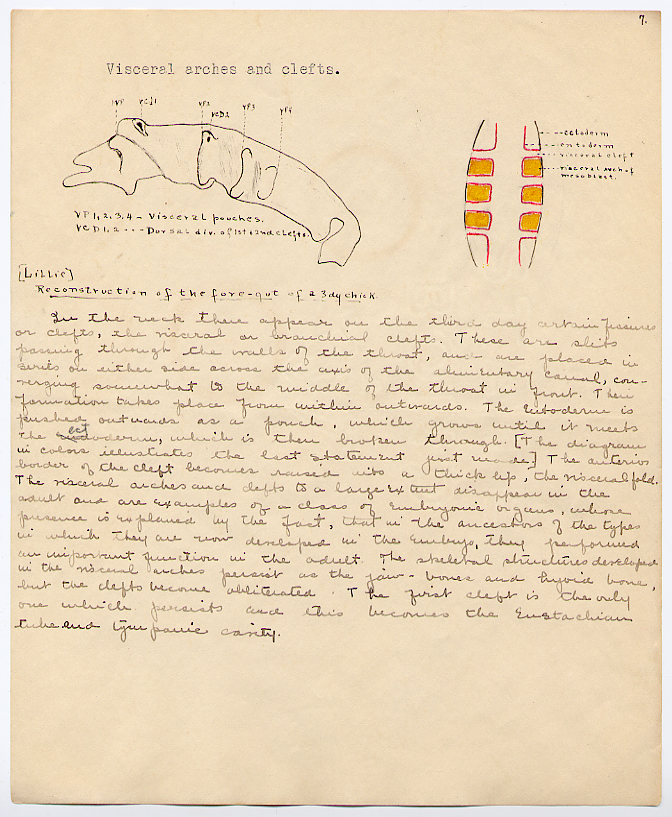 7.
Visceral arches and clefts.
VP1 VCD1 VP2 VCD2 VP3 VP4
ectoderm
entoderm
visceral cleft
visceral arch of
mesoblast.
VP 1, 2, 3, 4 - Visceral pouches.
VCD 1, 2 - - - Dorsal div. of 1st & 2nd clefts.
[Lillie]
Reconstruction of the fore-gut of a 3 dy chick.
In the neck there appear on the third day certain fissures
or clefts, the visceral or branchial clefts. These are slits
passing through the walls of the throat, and are placed in
series on either side across the axis of the alimentary canal, con-
verging somewhat to the middle of the throat in front. Their
formation takes place from within outwards. The entoderm is
pushed outwards as a pouch, which grows until it meets
the ectoderm, which is then broken through. [The diagram
in colors illustrates the last statement just made] The anterior
border of the cleft becomes raised into a thick lip, the visceral fold.
The visceral arches and clefts to a large extent disappear in the
adult and are examples of a class of embryonic organs, whose
presence is explained by the fact, that in the ancestors of the types
in which they are now developed in the embryo, they performed
an important function in the adult. The skeletal structures developed
in the visceral arches persist as the jaw-bones and hyoid bone,
but the clefts become obliterated. The first cleft is the only
one which persists and this becomes the Eustachian
tube and tympanic cavity.